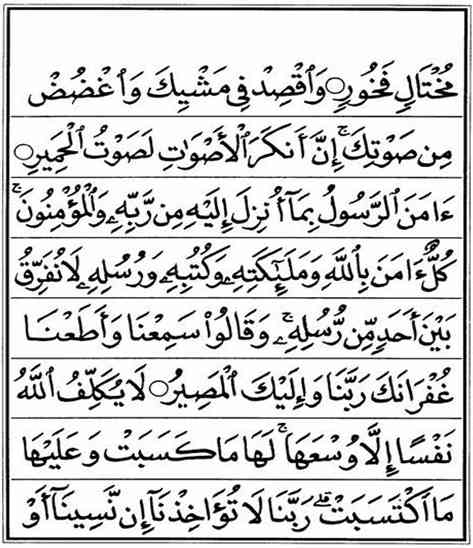 مُخْتَالٍ فَخُورٍ ۝ وَٱقْصِدْ فِى مَشْيِكَ وَٱغْضُضْ
مِن صَوْتِكَ ۚ إِنَّ أَنكَرَ ٱلْأَصْوَٰتِ لَصَوْتُ ٱلْحَمِيرِ ۝
ءَامَنَ ٱلرَّسُولُ بِمَآ أُنزِلَ إِلَيْهِ مِن رَّبِّهِۦ وَٱلْمُؤْمِنُونَ ۚ
كُلٌّ ءَامَنَ بِٱللَّهِ وَمَلَٰٓئِكَتِهِۦ وَكُتُبِهِۦ وَرُسُلِهِۦ لَا نُفَرِّقُ
بَيْنَ أَحَدٍ مِّن رُّسُلِهِۦ ۚ وَقَالُوا۟ سَمِعْنَا وَأَطَعْنَا
غُفْرَانَكَ رَبَّنَا وَإِلَيْكَ ٱلْمَصِيرُ ۝ لَا يُكَلِّفُ ٱللَّهُ
نَفْسًا إِلَّا وُسْعَهَا ۚ لَهَا مَا كَسَبَتْ وَعَلَيْهَا
مَا ٱكْتَسَبَتْ ۗ رَبَّنَا لَا تُؤَاخِذْنَآ إِن نَّسِينَآ أَوْ